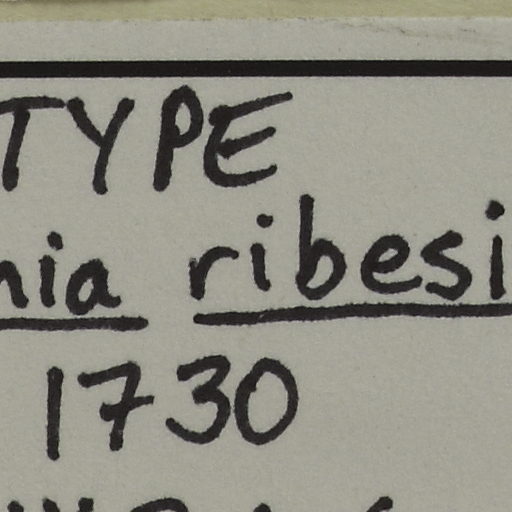 TYPE
nia ribesi
1730